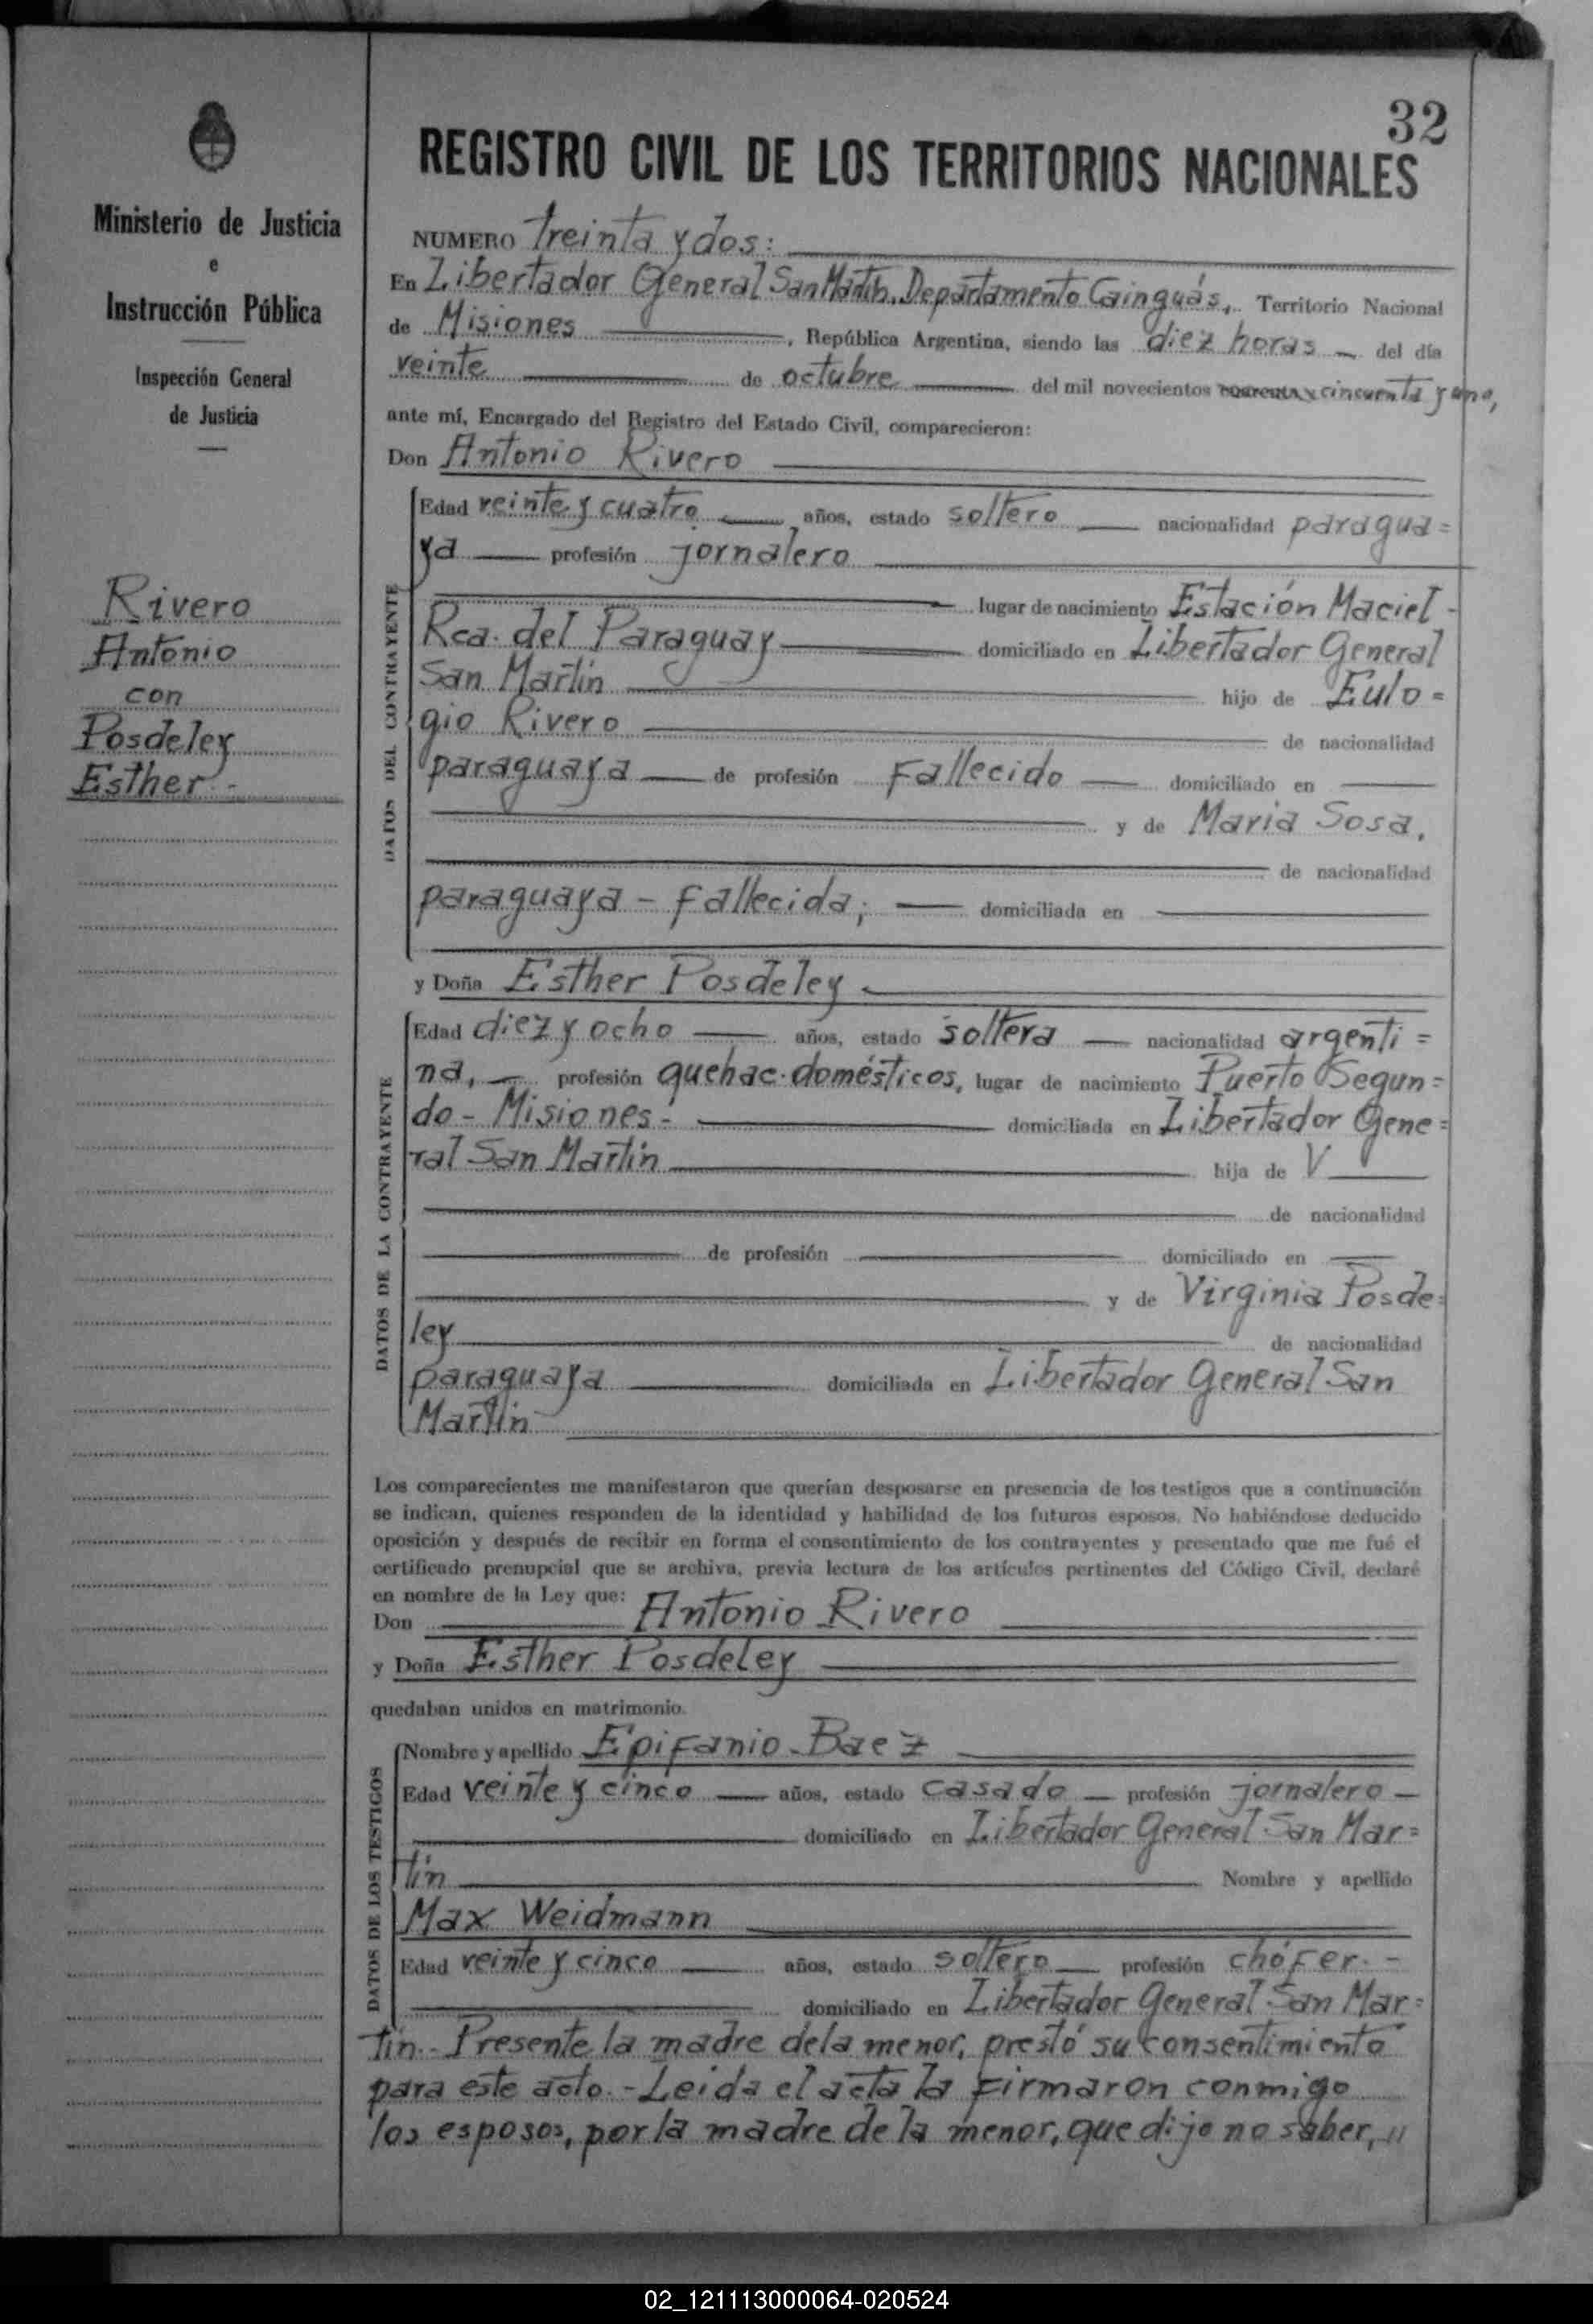 32
REGISTRO CIVIL DE LOS TERRITORIOS NACIONALES
Ministerio de Justicia
e
Instrucción Pública
Inspección General
de Justicia
Rivero
Antonio
con
Posdeley
Esther.-
NUMERO Treinta y dos:
En Libertador General San Martín, Departamento Cainguás, Territorio Nacional
de Misiones, República Argentina, siendo las diez horas - del día
veinte de octubre del mil novecientos cuarenta y cincuenta y uno,
ante mí, Encargado del Registro del Estado Civil, comparecieron:
Don Antonio Rivero
DATOS DEL CONTRAYENTE
Edad veinte y cuatro años, estado soltero nacionalidad paragua=
ya profesión jornalero
lugar de nacimiento Estación Maciel -
Rca. del Paraguay domiciliado en Libertador General
San Martín hijo de Eulo=
gio Rivero de nacionalidad
paraguaya de profesión Fallecido domiciliado en
y de Maria Sosa,
de nacionalidad
paraguaya - Fallecida; domiciliada en
y Doña Esther Posdeley
DATOS DE LA CONTRAYENTE
Edad diez y ocho años, estado soltera nacionalidad argenti=
na, profesión quehac. domésticos, lugar de nacimiento Puerto Segun=
do - Misiones - domiciliada en Libertador Gene=
ral San Martín hija de V
de nacionalidad
de profesión domiciliado en
y de Virginia Posde=
ley de nacionalidad
paraguaya domiciliada en Libertador General San
Martín
Los comparecientes me manifestaron que querían desposarse en presencia de los testigos que a continuación
se indican, quienes responden de la identidad y habilidad de los futuros esposos. No habiéndose deducido
oposición y después de recibir en forma el consentimiento de los contrayentes y presentado que me fué el
certificado prenupcial que se archiva, previa lectura de los artículos pertinentes del Código Civil, declaré
en nombre de la Ley que:
Don Antonio Rivero
y Doña Esther Posdeley
quedaban unidos en matrimonio.
DATOS DE LOS TESTIGOS
Nombre y apellido Epifanio Baez
Edad veinte y cinco años, estado casado - profesión jornalero -
domiciliado en Libertador General San Mar=
tín Nombre y apellido
Max Weidmann
Edad veinte y cinco años, estado soltero profesión chófer. -
domiciliado en Libertador General San Mar=
tín.- Presente la madre de la menor, prestó su consentimiento
para este acto.- Leída el acta la firmaron conmigo
los esposos, por la madre de la menor, que dijo no saber, "
02_121113000064-020524